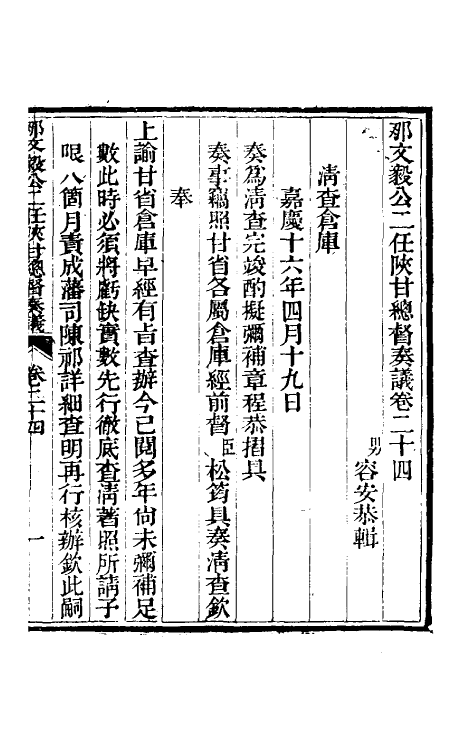 那文毅公二任陝甘總督奏議卷二十四
男容安恭輯
清查倉庫
嘉慶十六年四月十九日
奏為清查完竣酌擬彌補章程恭摺具
奏事竊照甘省各屬倉庫經前督臣松筠具奏清查欽
奉
上諭甘省倉庫早經有旨查辦今已閱多年尙未彌補足
數此時必須將虧缺實數先行徹底查清著照所請予
限八箇月責成藩司陳祁詳細查明再行核辦欽此嗣
那文毅公二任陝甘總督奏議 卷二十四 一